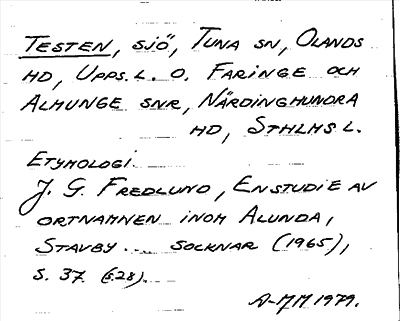 TESTEN, SJÖ, TUNA SN, OLANDS
HD, UPPS. L. O. FARINGE OCH
ALMUNGE SNR, NÄRDINGHUNDRA
HD, STHLMS L.
ETYMOLOGI.
J. G. FREDLUND, EN STUDIE AV
ORTNAMNEN INOM ALUNDA,
STAVBY ... SOCKNAR (1965),
S. 37. (S.28).
A-MM 1979.